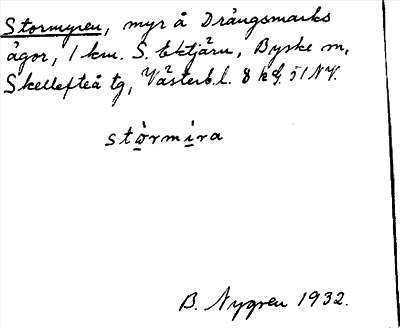 Stormyren, myr å Drängsmarks
ägor, 1 km. S. Ektjärn, Byske m,
Skellefteå tg, Västerb.l. 8 k f. 51 NV.
stòrmira
B. Nygren 1932.